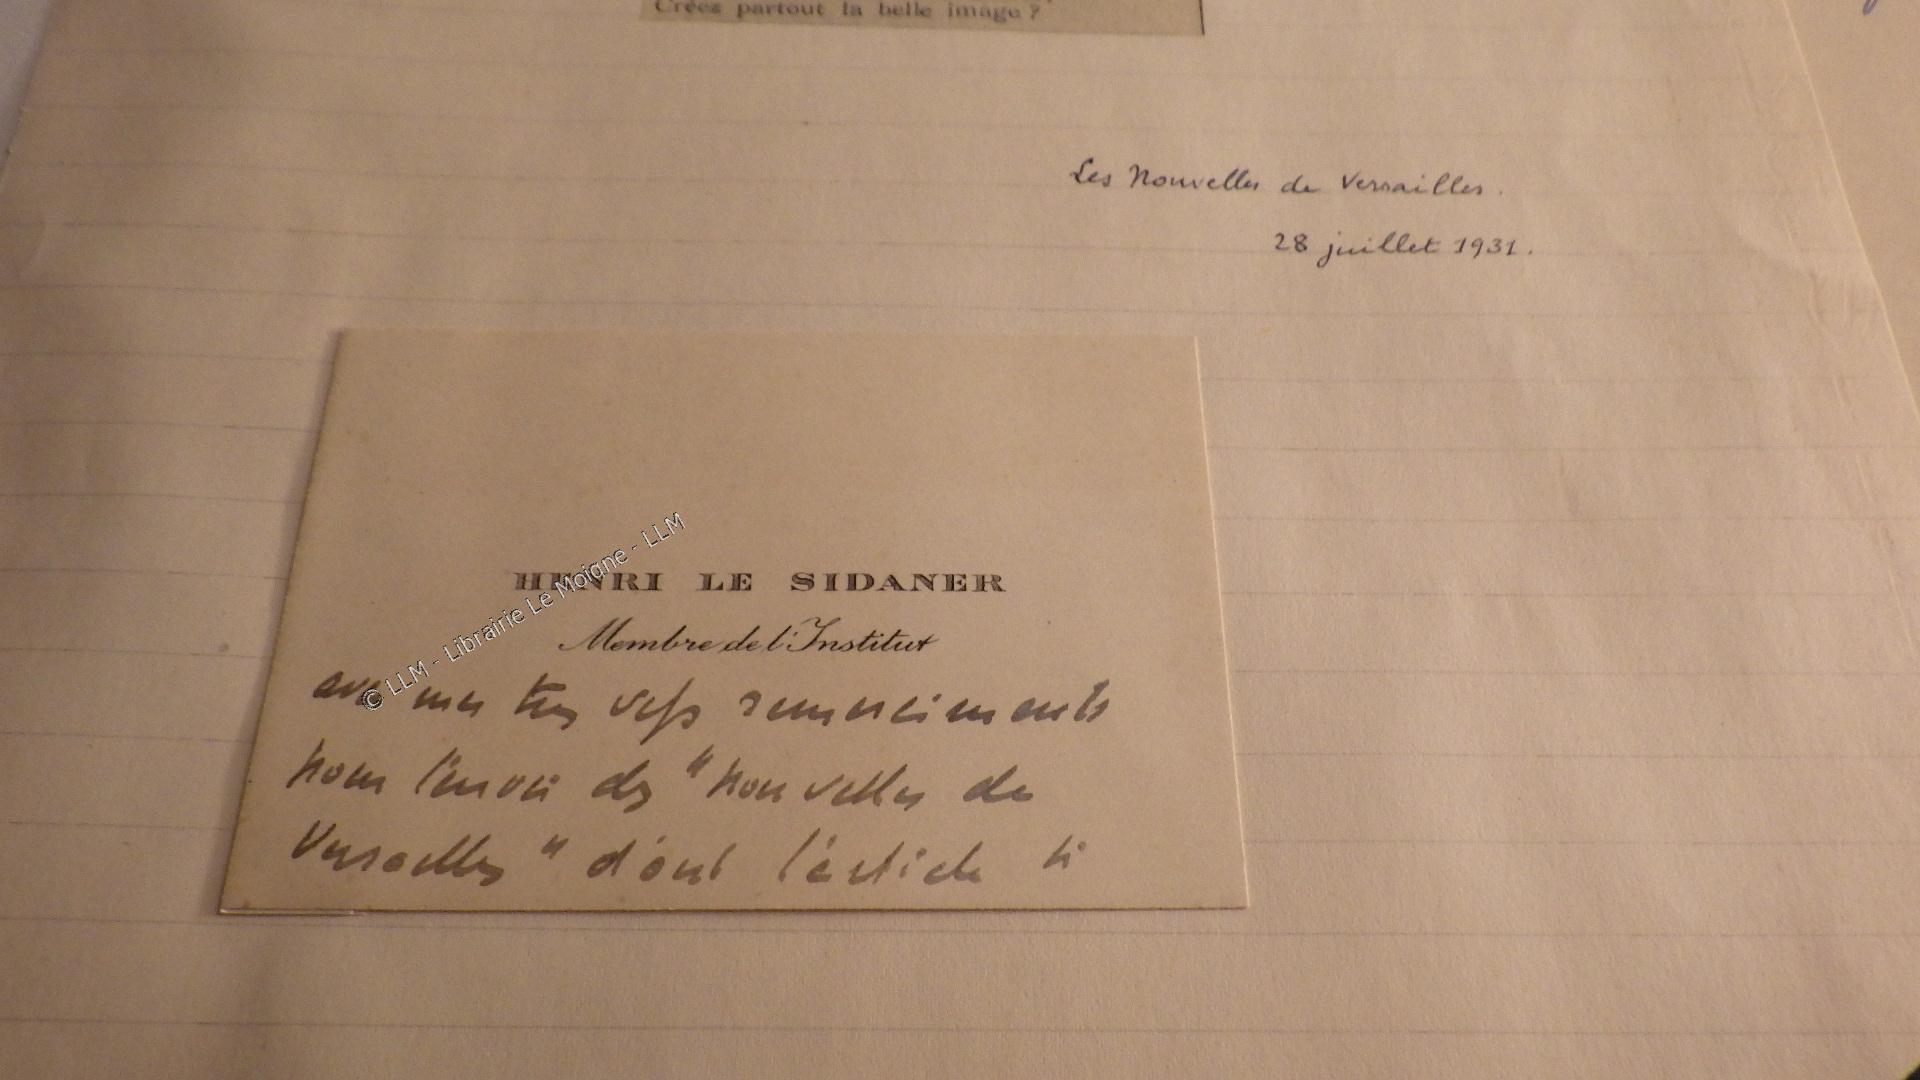 Crées partout la belle image ?
Les Nouvelles de Versailles.
28 juillet 1931.
HENRI LE SIDANER
Membre de l'Institut
avec mes très vifs remerciements
pour l'envoi des "Nouvelles de
Versailles" dont l'article si
© LLM - Librairie Le Moigne - LLM